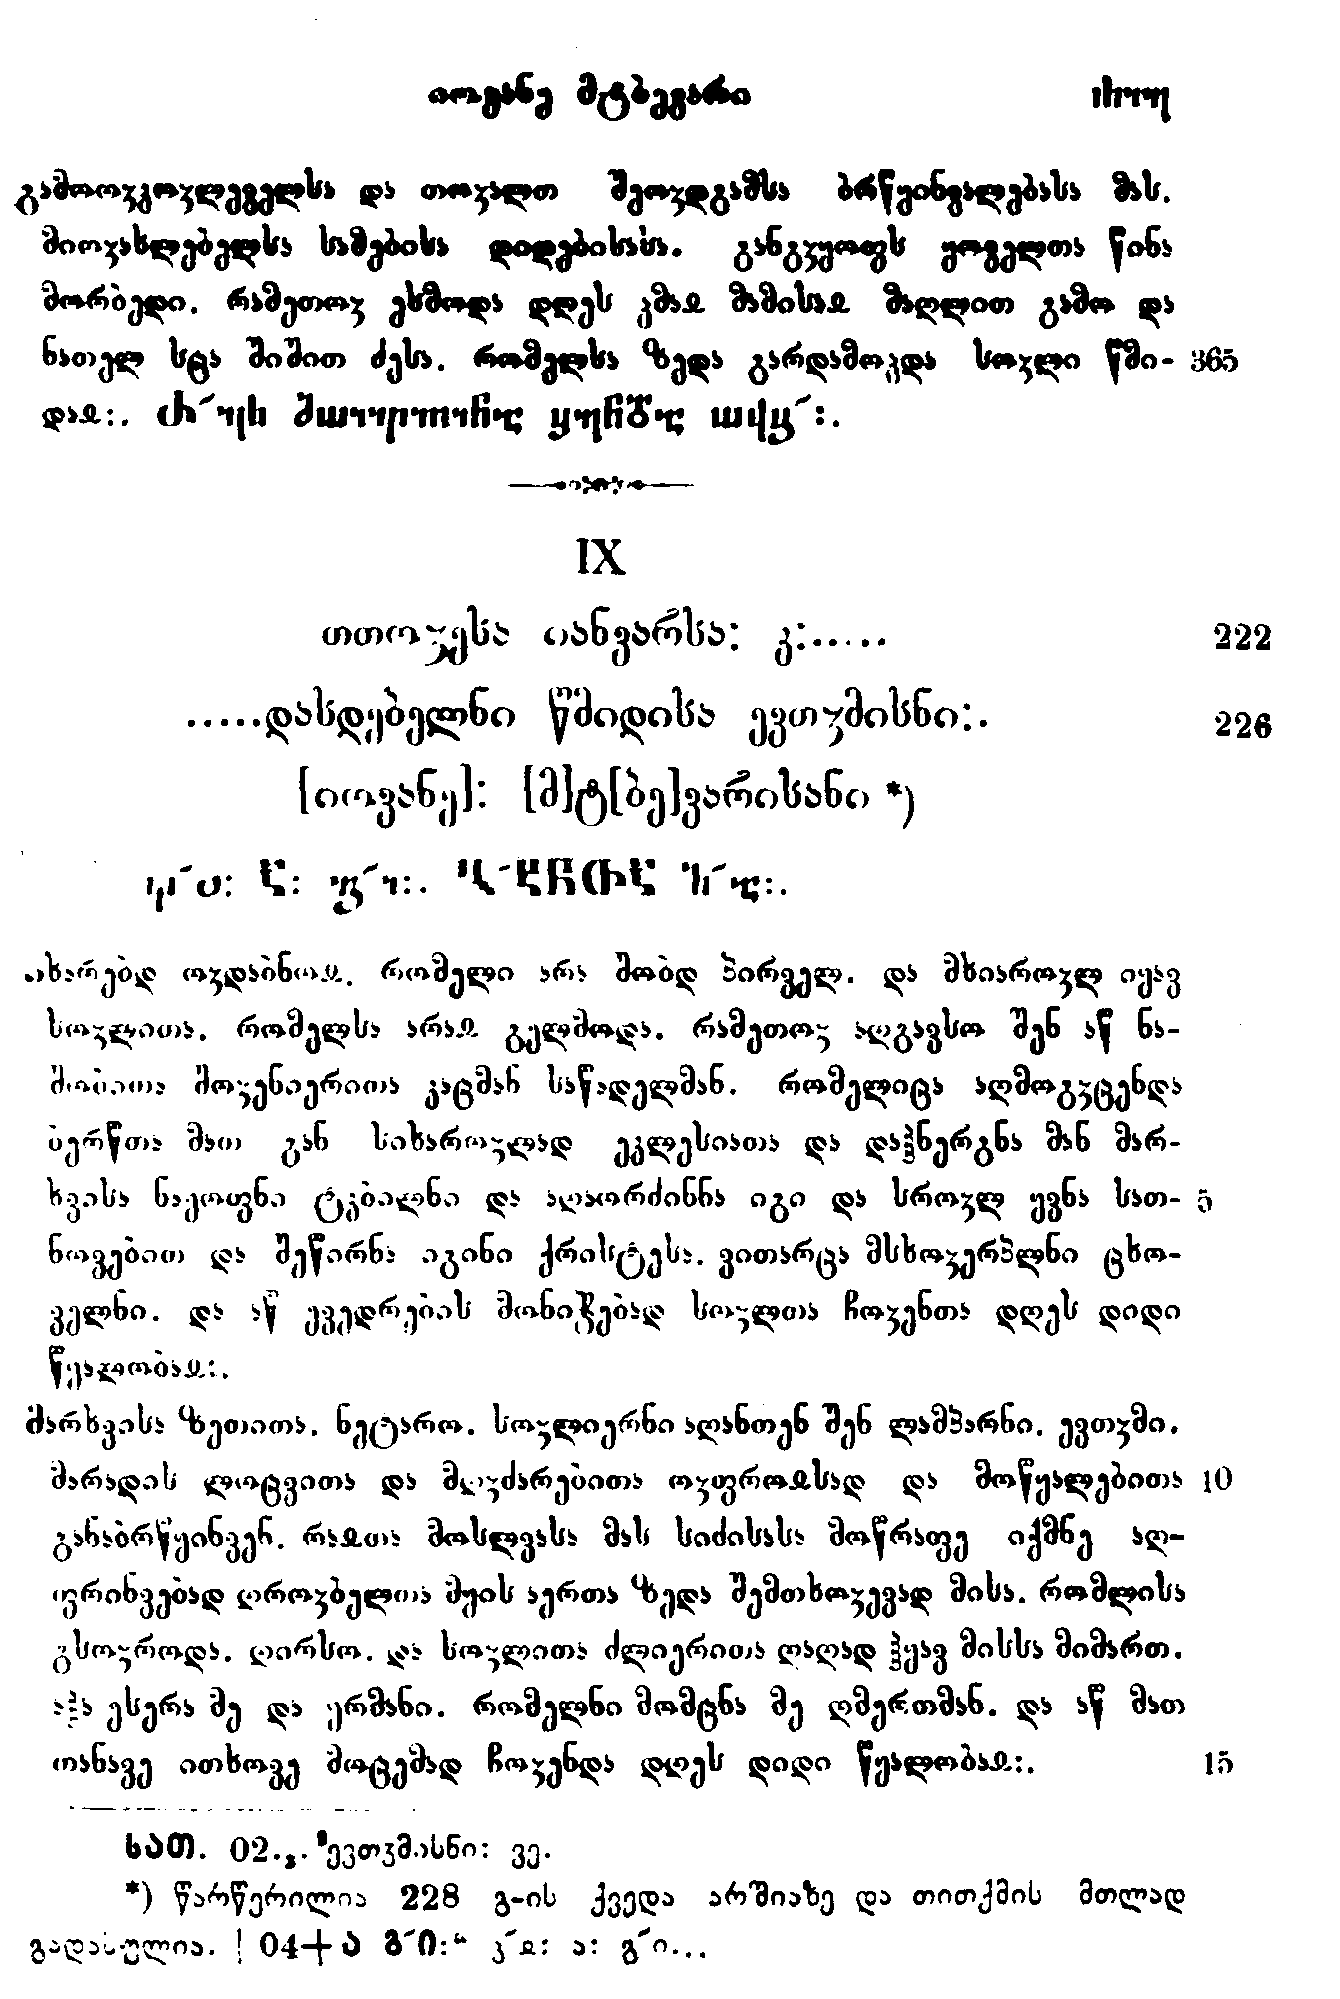 იოვანე მტბევარი
გამოოჳკოჳლეველსა და თოჳალთ შეოჳდგამსა ბრწყინვალებასა მას.
მიოჳახლებელსა სამების​ა დიდებისასა. განგჳყოფს ყოველთა წინა
მორბედი. რამეთოჳ ესმოდა დღეს ჴმაჲ მამისაჲ მაღლით გამო და
ნათელ სცა შიშით ძესა. რომელსა ზედა გარდამოჴდა სოჳლი წმი- 365
დაჲ:.
IX
თთოჳესა იანვარსა: კ:..... 222
.....დასდებელნი წმიდისა ევთჳმისნი:. 226
[იოვანე]: [მ]ტ[ბე]ვარისანი *)
იხარებდ ოჳდაბნოჲ. რომელი არა შობდ პირველ. და მხიაროჳლ იყავ
სოჳლითა. რომელსა არაჲ გელმოდა. რამეთოჳ აღგავსო შენ აწ ნა-
შობითა შოჳენიერითა კაცმან საწადელმან. რომელიცა აღმოგჳცენდა
ბერწთა მათ გან სიხაროჳლად ეკლესიათა და დაჰნერგნა მან მარ-
ხვისა ნაყოფნი ტკბილნი და აღაორძინნა იგი და სროჳლ ყვნა სათ- 5
ნოვებით და შეწირნა იგინი ქრისტესა. ვითარცა მსხოჳერპლნი ცხო-
ველნი. და აწ ევედრების მონიჭებად სოჳლთა ჩოჳენთა დღეს დიდი
წყალობაჲ:.
მარხვისა ზეთითა. ნეტარო. სოჳლიერნი აღანთენ შენ ლამპარნი. ევთჳმი.
მარადის ლოცვითა და მღჳძარებითა ოჳფროჲსად და მოწყალებითა 10
განაბრწყინვენ. რაჲთა მოსლვასა მას სიძისასა მოწრაფე იქმნე აღ-
ფრინვებად ღროჳბელთა მყის აერთა ზედა შემთხოჳევად მისა. რომლისა
გსოჳროდა. ღირსო. და სოჳლითა ძლიერითა ღაღად ჰყავ მისსა მიმართ.
აჰა ესერა მე და ყრმანი. რომელნი მომცნა მე ღმერთმან. და აწ მათ
თანავე ითხოვე მოცემად ჩოჳენდა დღეს დიდი წყალობაჲ:. 15
ᲡᲐᲗ. 02. ევთჳმისნი: ვე.
*) წარწერილია 228 გ-ის ქვედა არშიაზე და თითქმის მთლად
გადასულია. | 04+